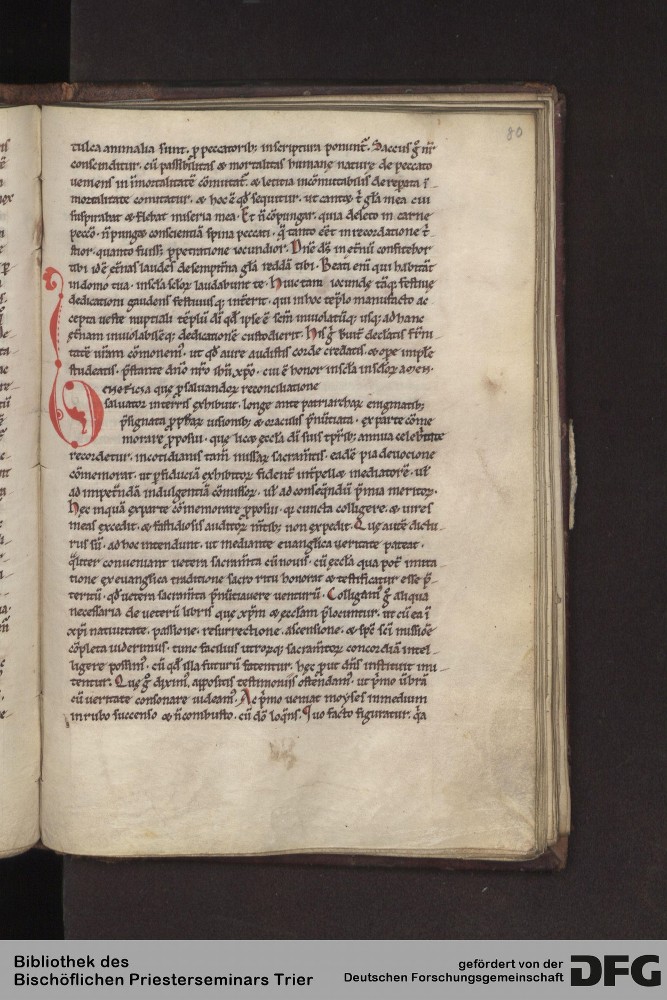 80
tulea animalia sunt, p peccatorib; inscriptura ponunt̄. Saccus g̊ nr̄
conscinditur. cū passibilitas & mortalitas humanę nature de peccato
ueniens in īmortalitatē cōmutat̄. & letitia incōmutabilis de reparata ī-
mortalitate comutatur. & hoc ē qd̄ sequitur. ut cantet t̄ gl̄a mea cui
suspirabat & flebat miseria mea. Et n̄ cōpungar. quia deleto in carne
pecc̄o. n̄ pungit conscientiā spina peccati. q̄ tanto erit in recordatione t̄
stior. quanto fuiss& ppetratione iocundior. Dn̄e ds̄ in et̄nū confitebor
tibi id ē et̄nas laudes de sempit̄na gl̄a reddā tibi. Beati eni qui habitāt
in domo tua. inscl̄a sclor̄ laudabunt te. Huic tam iocundę tāq; festiuę
dedicationi gaudens festiuusq; int̄erit. qui in hoc teplo manufacto ac
cepta ueste nuptiali tēplū dī qd̄ ipse ē sem̄ inuiolatūq; usq; ad hanc
et̄nam inuiolabilēq; dedicationē custodierit. His g̊ breuit̄ declaratis fr̄rni
tatē uram cōmonem'. ut qd̄ aure audistis corde credatis. & ope implere
studeatis. pstante dn̄o nr̄o ihu xpo. cui ē honor inscl̄a inscl̄or̄ amen.
eneficia que p saluandor̄ reconciliatione
saluator interris exhibuit. longe ante patriarchar̄ enigmatib;
p̄signata pphetar̄ uisionib; & oraculis p̄nūtiata. ex parte cōme
morare pposui. que licet eccl̄a dī suis tp̄rib; annua celebritate
recordetur. in cotidianis tam̄ missar̄ sacram̄tis. eadē pia deuotione
cōmemorat. ut p fiduciā exhibitor̄ fident̄ int̄pellet mediatorē. ut
ad impet̄ndā indulgentiā cōmissor̄. ut ad conseq̄ndū p̄mia meritor̄.
Hęc inquā ex parte cōmemorare pposui. q̄ cuncta colligere. & uires
meas excedit. & fastidiosis auditor̄ m̄tib; non expedit. Que autē dictu-
rus sū. ad hoc intendunt. ut mediante euanglica ueritate pateat.
q̄liter conueniant uetera sacram̄ta cū nouis. cū eccl̄a qua pot̄ imita
tione ex euanglica traditione sacro ritu honorat & testificatur esse p̄
teritū. qd̄ uetera sacram̄ta p̄nūtiauere uenturū. Colligant̄ g̊ aliqua
necessaria de veterū libris que xpm̄ & ecclam p̄locuntur. ut cū ea ī
xpi natiuitate. passione. resurrectione. ascensione. & spc̄ sci missione
cōpleta uiderimus. tunc facilius utror̄q; sacram̄tor̄ concordiā intel-
ligere possim'. cū qd̄ illa futurū fatentur. hęc put dn̄s instituit imi-
tentur. Que g̊ dixim'. appositis testimoniis ostendam'. ut p̄mo ūbrā
cū ueritate consonare uideam'. Ac p̄mo ueniat moyses inmedium
in rubo succenso & n̄ combusto. cū dō loq̄ns. Quo facto figuratur. q̄a
Bibliothek des
Bischöflichen Priesterseminars Trier
gefördert von der
Deutschen Forschungsgemeinschaft
DFG